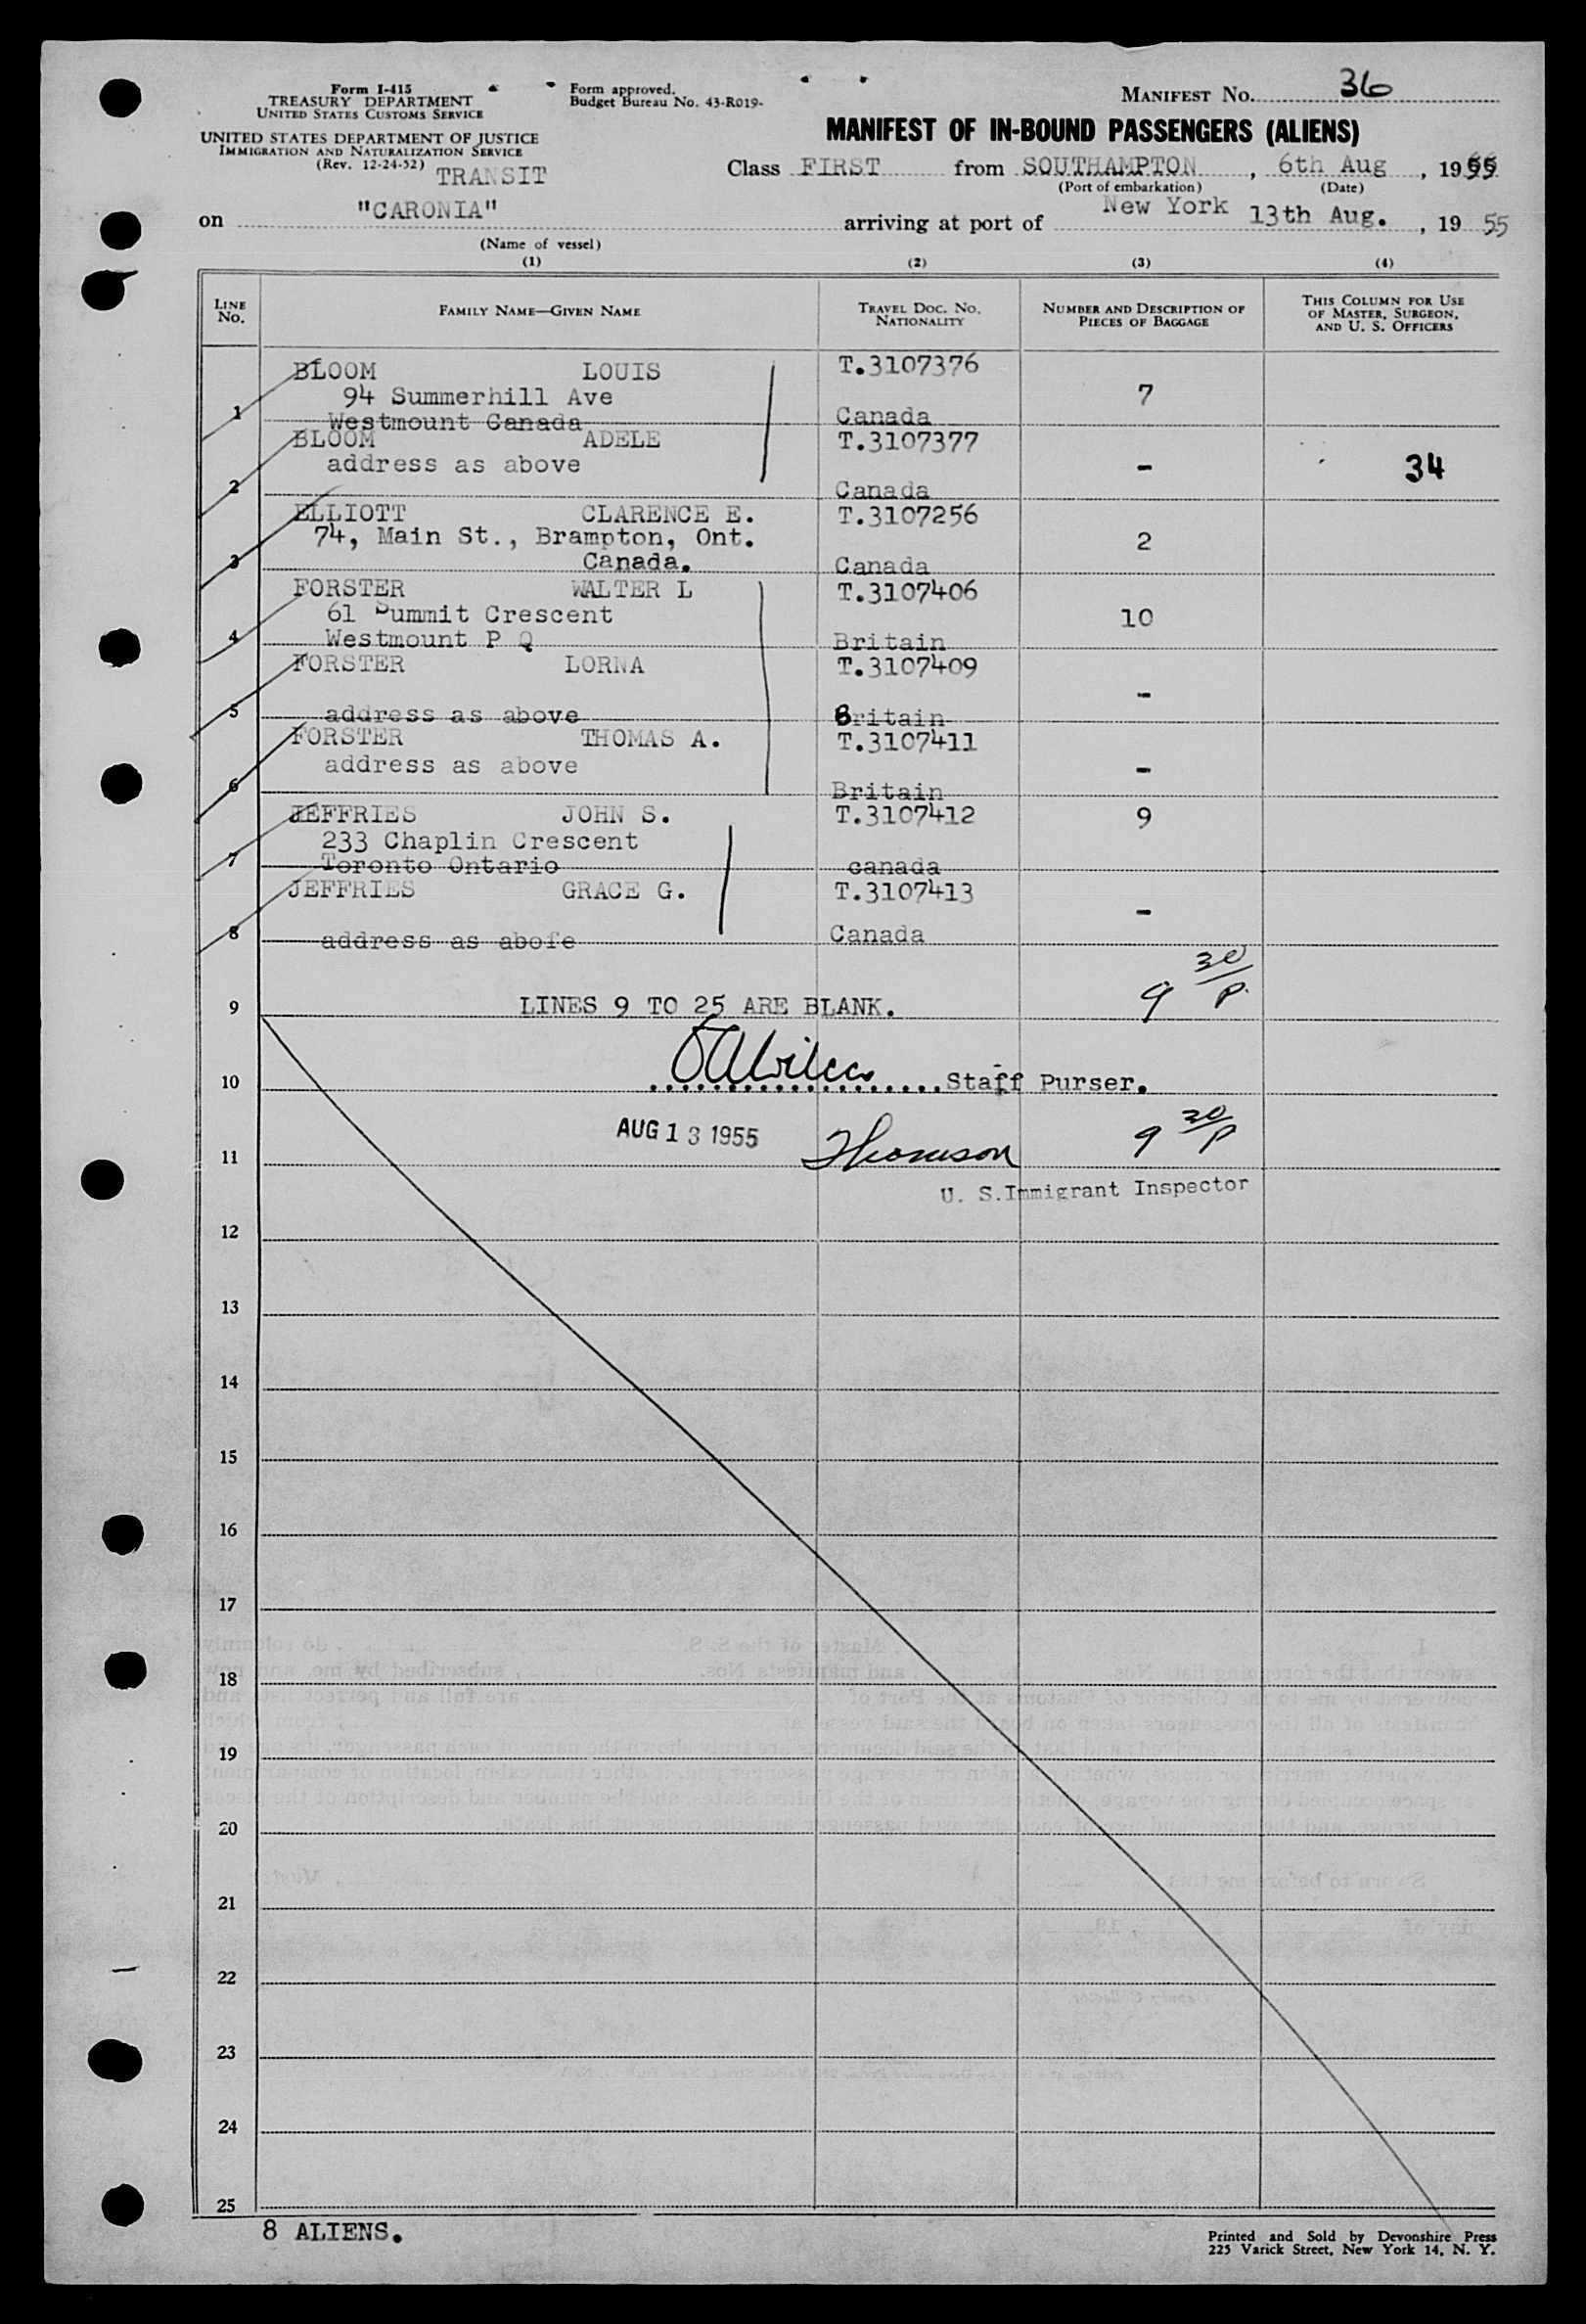 Form I-415
TREASURY DEPARTMENT
UNITED STATES CUSTOMS SERVICE
UNITED STATES DEPARTMENT OF JUSTICE
IMMIGRATION AND NATURALIZATION SERVICE
(Rev. 12-24-52)
TRANSIT
Form approved.
Budget Bureau No. 43-R019-
MANIFEST NO. 36
MANIFEST OF IN-BOUND PASSENGERS (ALIENS)
Class FIRST from SOUTHAMPTON, 6th Aug, 1955
(Port of embarkation) (Date)
on "CARONIA" arriving at port of New York 13th Aug., 19 55
(Name of vessel)
(1) (2) (3) (4)
LINE NO.
FAMILY NAME—GIVEN NAME
TRAVEL DOC. NO. NATIONALITY
NUMBER AND DESCRIPTION OF PIECES OF BAGGAGE
THIS COLUMN FOR USE OF MASTER, SURGEON, AND U. S. OFFICERS
BLOOM LOUIS T.3107376
94 Summerhill Ave 7
1 Westmount Canada Canada
BLOOM ADELE T.3107377
address as above - 34
2 Canada
ELLIOTT CLARENCE E. T.3107256
74, Main St., Brampton, Ont. 2
3 Canada. Canada
FORSTER WALTER L T.3107406
61 Summit Crescent 10
4 Westmount P Q Britain
FORSTER LORNA T.3107409
-
5 address as above Britain
FORSTER THOMAS A. T.3107411
address as above -
6 Britain
JEFFRIES JOHN S. T.3107412 9
233 Chaplin Crescent
7 Toronto Ontario canada
JEFFRIES GRACE G. T.3107413
-
8 address as abofe Canada
9 30/P.
9 LINES 9 TO 25 ARE BLANK.
10 Staff Purser.
11 AUG 13 1955 Thomson 9 30/P
U. S.Immigrant Inspector
12
13
14
15
16
17
18
19
20
21
22
23
24
25
8 ALIENS.
Printed and Sold by Devonshire Press
225 Varick Street, New York 14, N. Y.